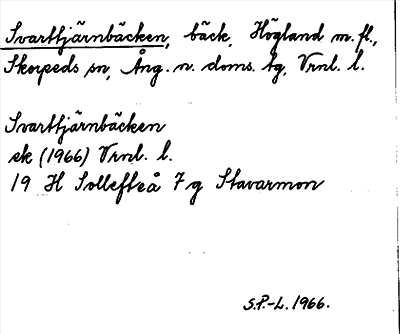 Svarttjärnbäcken, bäck, Högland m. fl.,
Skorpeds sn, Ång. n. doms. tg, Vrnl. l.
Svarttjärnbäcken
ek (1966) Vrnl. l.
19 H Sollefteå 7 g Stavarmon
S.P.-L. 1966.